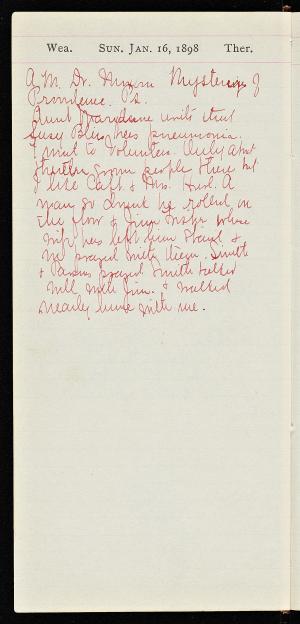 Wea. SUN. JAN. 16, 1898 Ther.
A M. Dr. Mysterys of
Providence. Ps.
Aunt writes that
Susy Bliss has pneumonia.
I went to Volunteers. Only about
people there but
I like Capt. & Mrs. A
man so drunk he rolled on
the floor & Jim whose
wife has left him stayed &
we prayed with them. Smith
& prayed Smith talked
well with Jim. & walked
nearly home with me.